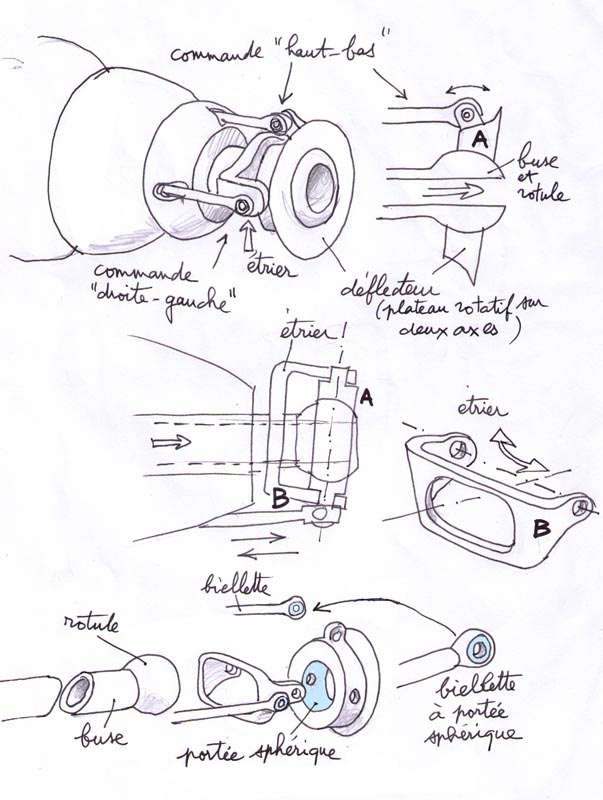 commande "haut-bas"
A
buse
et
rotule
commande
"droite-gauche"
étrier
déflecteur
(plateau rotatif sur
deux axes)
étrier
A
B
étrier
B
biellette
rotule
buse
portée sphérique
biellette
à portée
sphérique